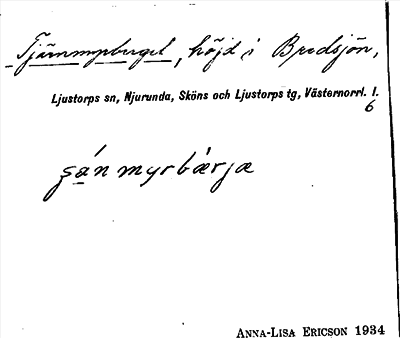 Tjärnmyrberget, höjd i Bredsjön,
Ljustorps sn, Njurunda, Sköns och Ljustorps tg, Västernorrl. l.
6
şánmyrbærjæ
ANNA-LISA ERICSON 1934